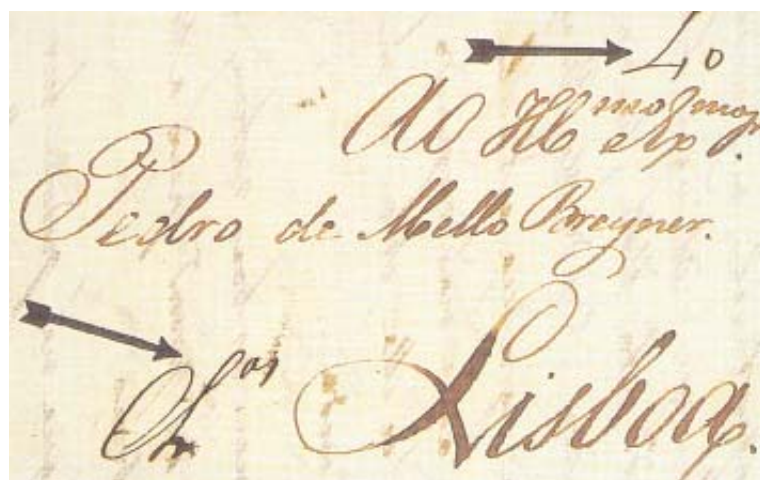 40
Ao Ill^mo e Ex^mo S^r.
Pedro de Mello Breyner.
Lisboa.